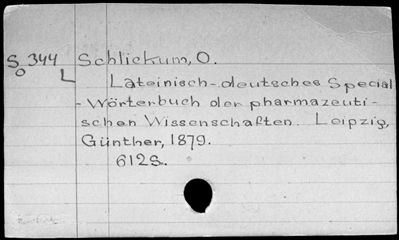 S 344 Schlickum, O.
o L
Lateinisch-deutsches Special
-Wörterbuch der pharmazeuti-
schen Wissenschaften. Leipzig,
Günther, 1879.
612S.